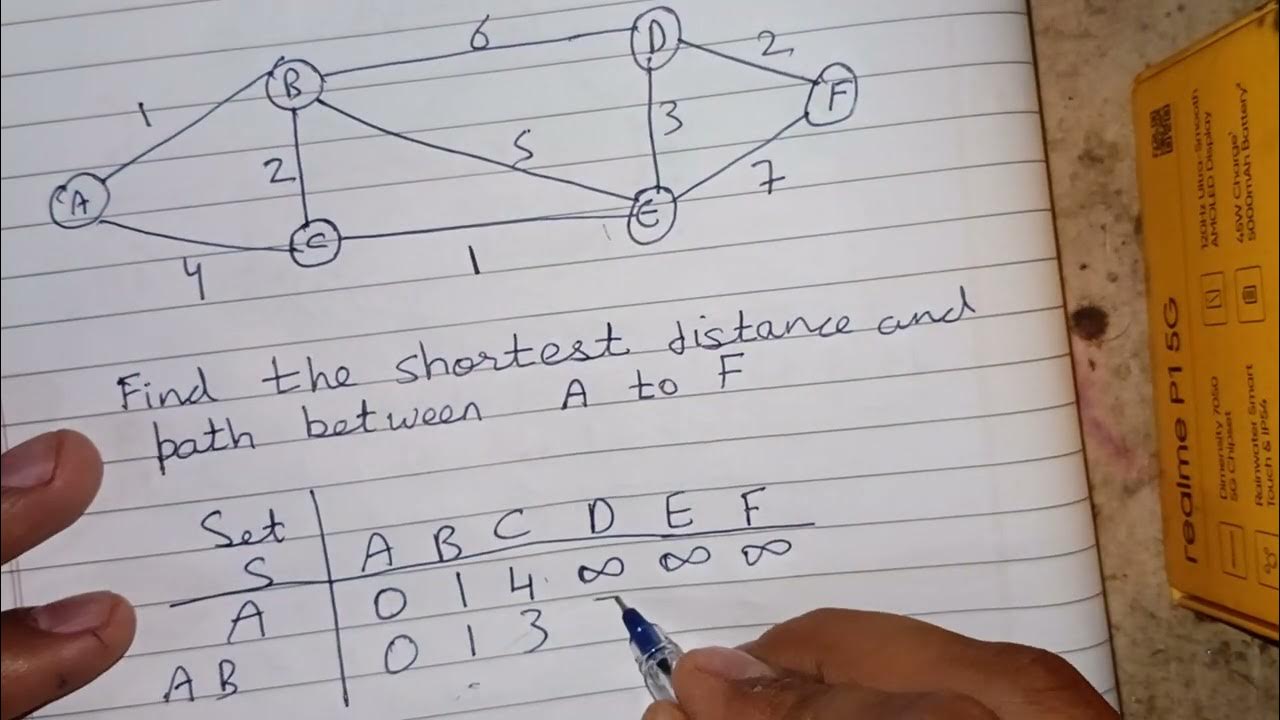 6
D
2
B
1
F
5
3
2
7
A
C
E
4
1
Find the shortest distance and
path between A to F
Set
S
A B C D E F
A 0 1 4 ∞ ∞ ∞
A B 0 1 3
realme P1 5G
120Hz Ultra-Smooth
AMOLED Display
45W Charge
5000mAh Battery
Dimensity 7050
5G Chipset
Rainwater Smart
Touch & IP54